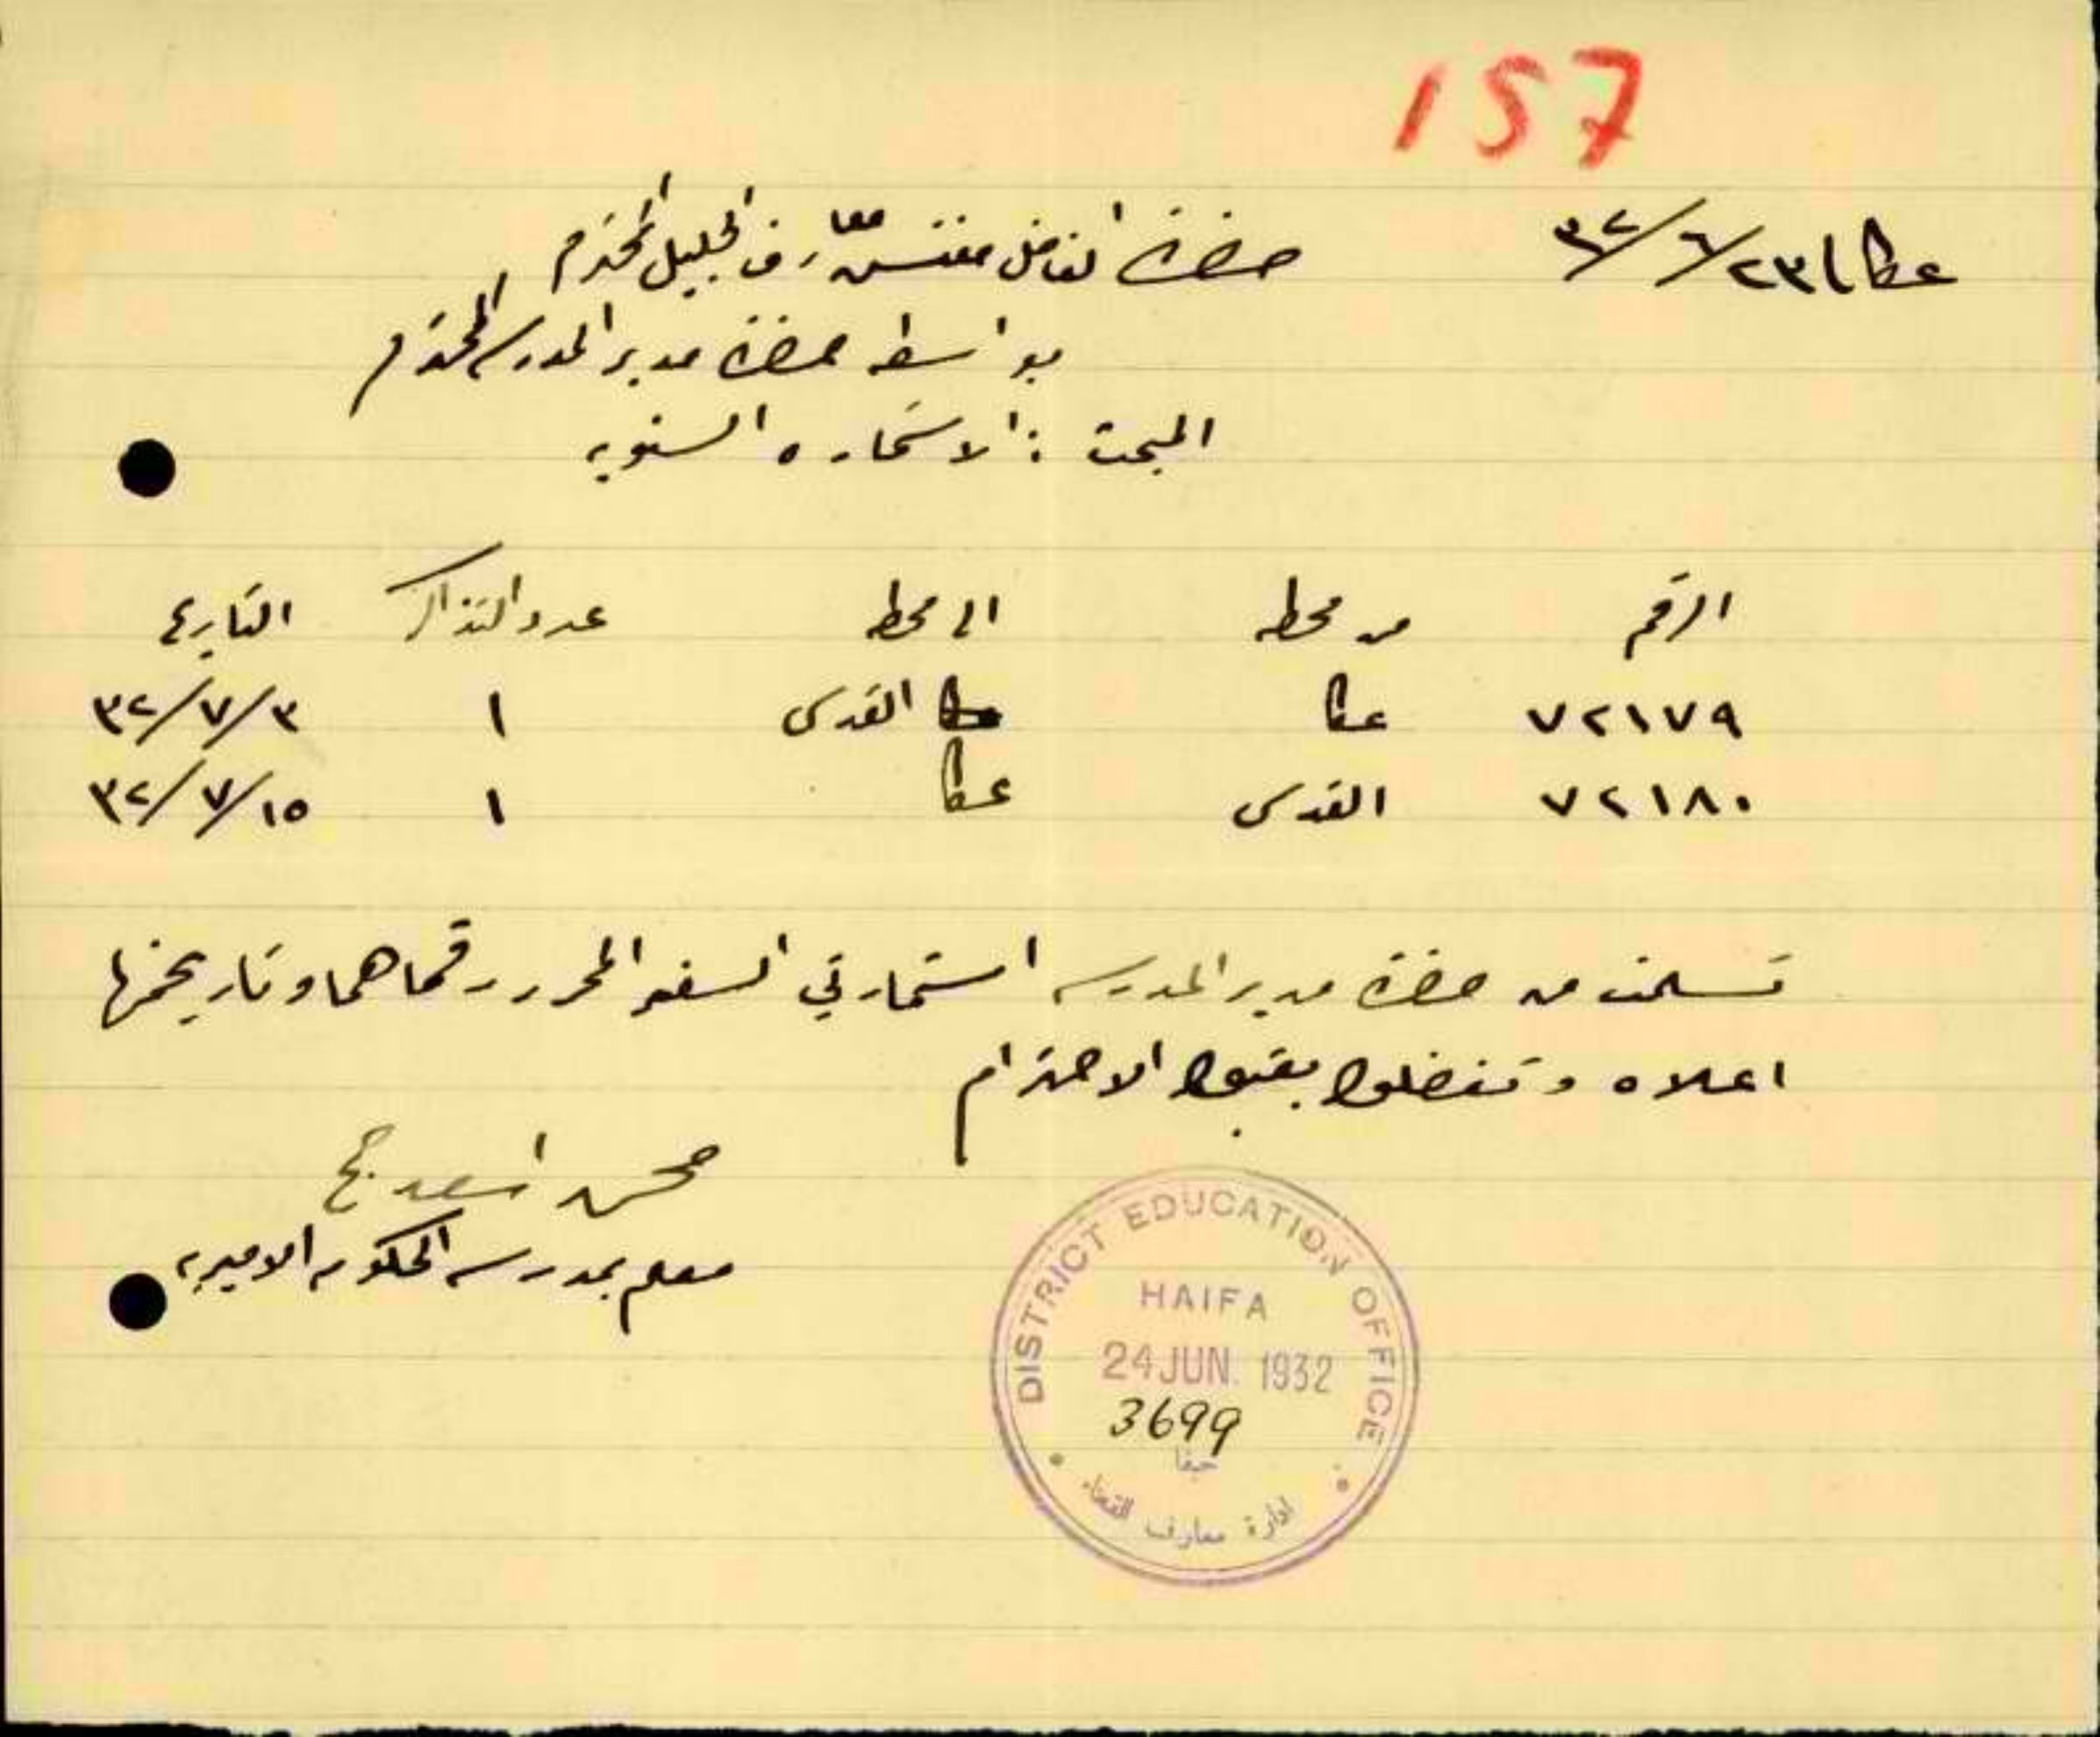 157
عكا ٢٣/٦/٣٢
حضرة الفاضل مفتش معارف الجليل المحترم
بواسطة حضرة مدير المدرسه المحترم
المبحث : الاستماره السنويه
الرقم من محطه الى محطه عدد التذاكر التاريخ
٧٢١٧٩ عكا القدس ١ ٣/٧/٣٢
٧٢١٨٠ القدس عكا ١ ١٥/٧/٣٢
تسلمت من حضرة مدير المدرسه استمارتي السفر المحرر رقماهما وتاريخهما
اعلاه وتفضلوا بقبول الاحترام
محسن اسعد
معلم بمدرسه الحكومه الاميريه
DISTRICT EDUCATION OFFICE
HAIFA
24 JUN. 1932
3699
حيفا
ادارة معارف القضاء